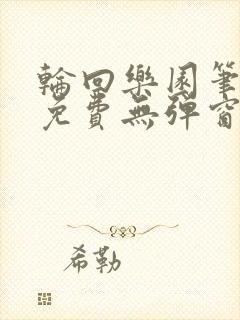 輪回樂園筆
免費無彈窗
希勒